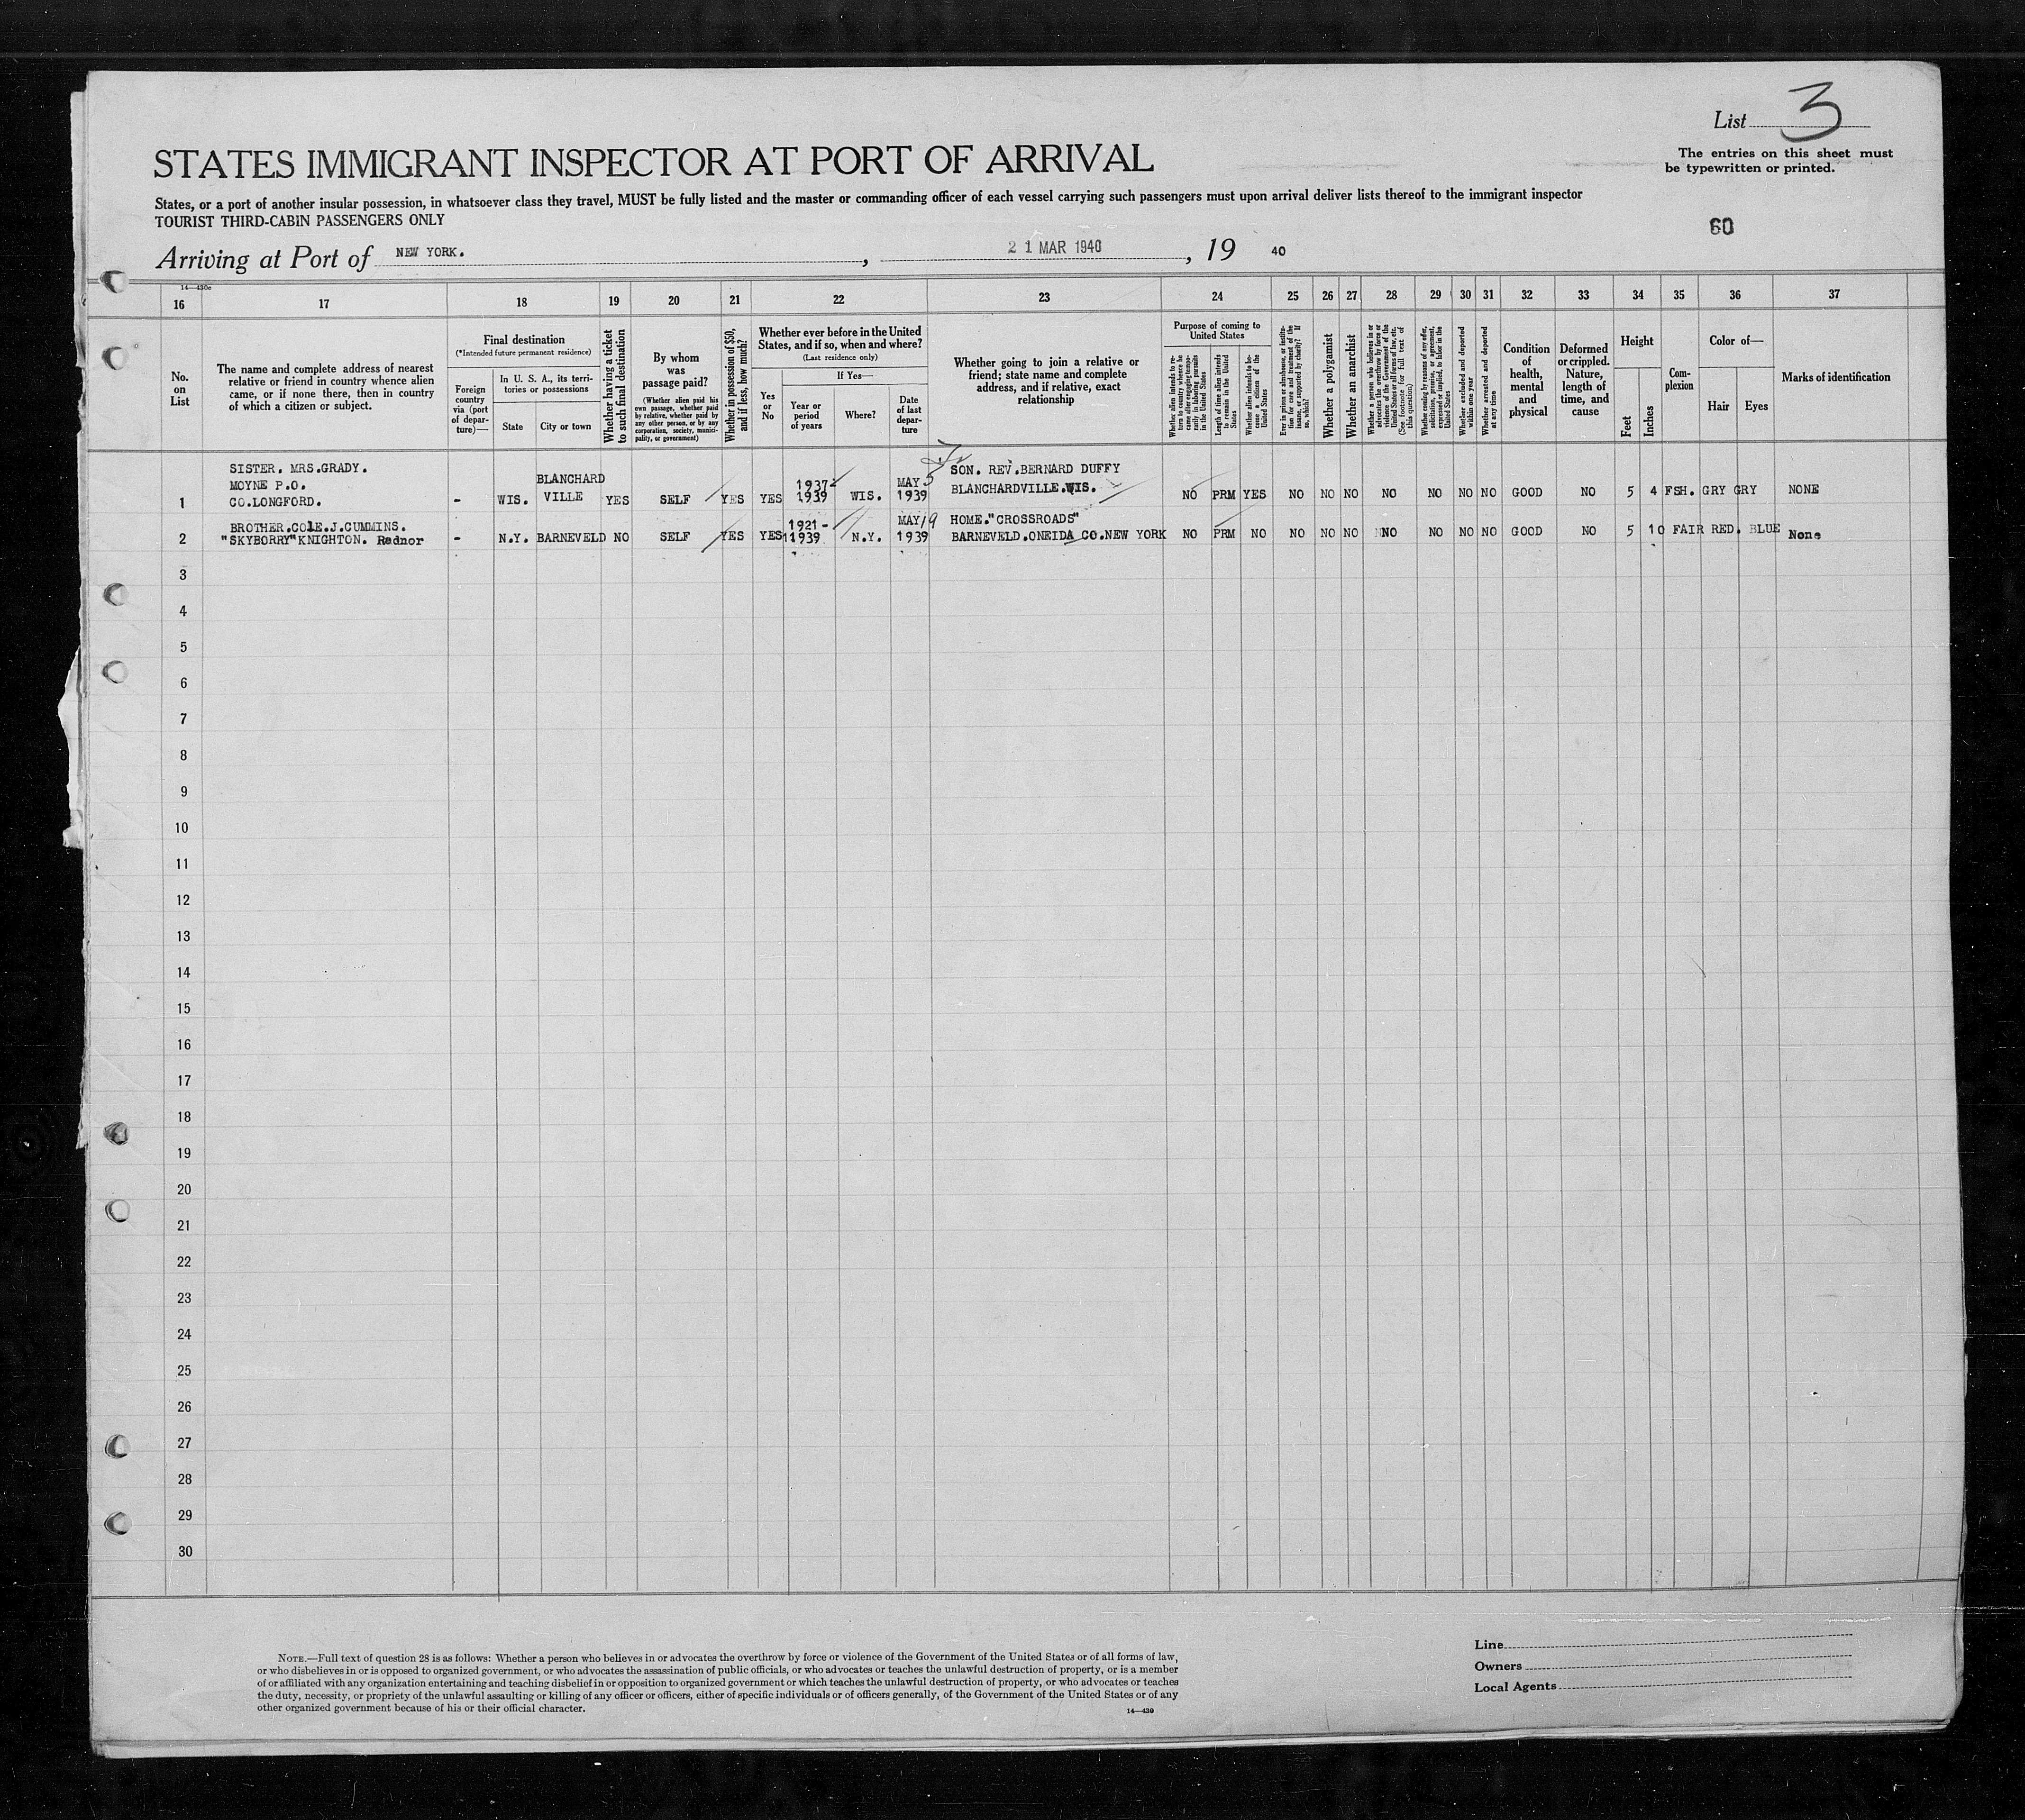 List 3
The entries on this sheet must
be typewritten or printed.
STATES IMMIGRANT INSPECTOR AT PORT OF ARRIVAL
States, or a port of another insular possession, in whatsoever class they travel, MUST be fully listed and the master or commanding officer of each vessel carrying such passengers must upon arrival deliver lists thereof to the immigrant inspector
TOURIST THIRD-CABIN PASSENGERS ONLY
60
Arriving at Port of NEW YORK. , 21 MAR 1940 , 19 40
14—430e
16 17 18 19 20 21 22 23 24 25 26 27 28 29 30 31 32 33 34 35 36 37
No.
on
List
The name and complete address of nearest
relative or friend in country whence alien
came, or if none there, then in country
of which a citizen or subject.
Final destination
(*Intended future permanent residence)
Foreign
country
via (port
of depar-
ture)—
In U. S. A., its terri-
tories or possessions
State
City or town
Whether having a ticket
to such final destination
By whom
was
passage paid?
(Whether alien paid his
own passage, whether paid
by relative, whether paid by
any other person, or by any
corporation, society, munici-
pality, or government)
Whether in possession of $50,
and if less, how much?
Whether ever before in the United
States, and if so, when and where?
(Last residence only)
Yes
or
No
If Yes—
Year or
period
of years
Where?
Date
of last
depar-
ture
Whether going to join a relative or
friend; state name and complete
address, and if relative, exact
relationship
Purpose of coming to
United States
Whether alien intends to re-
turn to country whence he
came after engaging tempo-
rarily in laboring pursuits
in the United States
Length of time alien intends
to remain in the United
States
Whether alien intends to be-
come a citizen of the
United States
Ever in prison or almshouse, or institu-
tion for care and treatment of the
insane, or supported by charity? If
so, which?
Whether a polygamist
Whether an anarchist
Whether a person who believes in or
advocates the overthrow by force or
violence of the Government of the
United States or all forms of law, etc.
(See footnote for full text of
this question)
Whether coming by reasons of any offer,
solicitation, promise, or agreement,
expressed or implied, to labor in the
United States
Whether excluded and deported
within one year
Whether arrested and deported
at any time
Condition
of
health,
mental
and
physical
Deformed
or crippled.
Nature,
length of
time, and
cause
Height
Feet
Inches
Com-
plexion
Color of—
Hair
Eyes
Marks of identification
SISTER. MRS.GRADY.
MOYNE P.O.
CO.LONGFORD.
1 - WIS. BLANCHARD
VILLE YES SELF YES YES 1937-
1939 WIS. MAY 3
1939 SON. REV.BERNARD DUFFY
BLANCHARDVILLE.WIS. NO PRM YES NO NO NO NO NO NO NO GOOD NO 5 4 FSH. GRY GRY NONE
BROTHER.COLE.J.CUMMINS.
"SKYBORRY"KNIGHTON. Radnor
2 - N.Y. BARNEVELD NO SELF YES YES 1921-
1939 N.Y. MAY 19
1939 HOME."CROSSROADS"
BARNEVELD.ONEIDA CO.NEW YORK NO PRM NO NO NO NO NO NO NO NO GOOD NO 5 10 FAIR RED. BLUE None
3
4
5
6
7
8
9
10
11
12
13
14
15
16
17
18
19
20
21
22
23
24
25
26
27
28
29
30
NOTE.—Full text of question 28 is as follows: Whether a person who believes in or advocates the overthrow by force or violence of the Government of the United States or of all forms of law,
or who disbelieves in or is opposed to organized government, or who advocates the assassination of public officials, or who advocates or teaches the unlawful destruction of property, or is a member
of or affiliated with any organization entertaining and teaching disbelief in or opposition to organized government or which teaches the unlawful destruction of property, or who advocates or teaches
the duty, necessity, or propriety of the unlawful assaulting or killing of any officer or officers, either of specific individuals or of officers generally, of the Government of the United States or of any
other organized government because of his or their official character.
14—430
Line
Owners
Local Agents